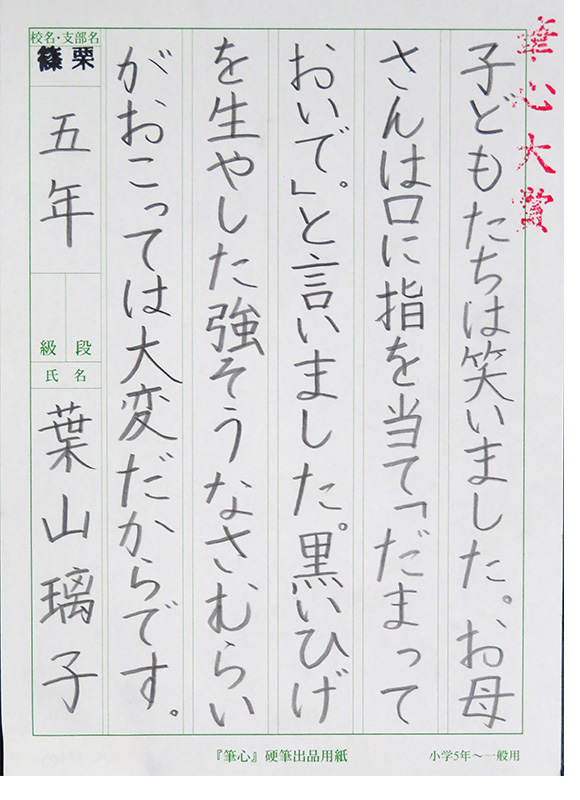 筆心大賞
子どもたちは笑いました。お母
さんは口に指を当て「だまって
おいで。」と言いました。黒いひげ
を生やした強そうなさむらい
がおこっては大変だからです。
校名・支部名
篠栗
五年
級 段
氏名
葉山璃子
『筆心』硬筆出品用紙
小学5年〜一般用